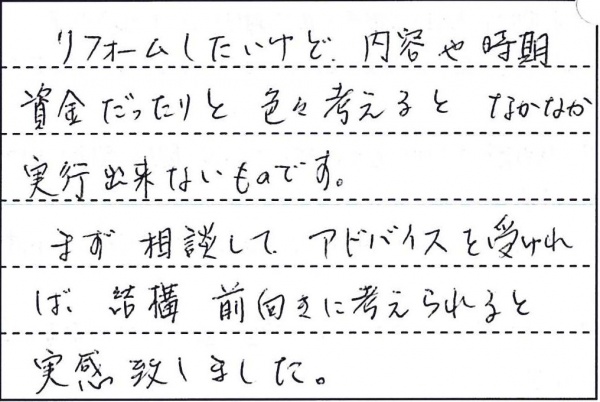 リフォームしたいけど、内容や時期
資金だったりと 色々考えると なかなか
実行出来ないものです。
まず 相談して アドバイスを受けれ
ば、結構 前向きに考えられると
実感致しました。